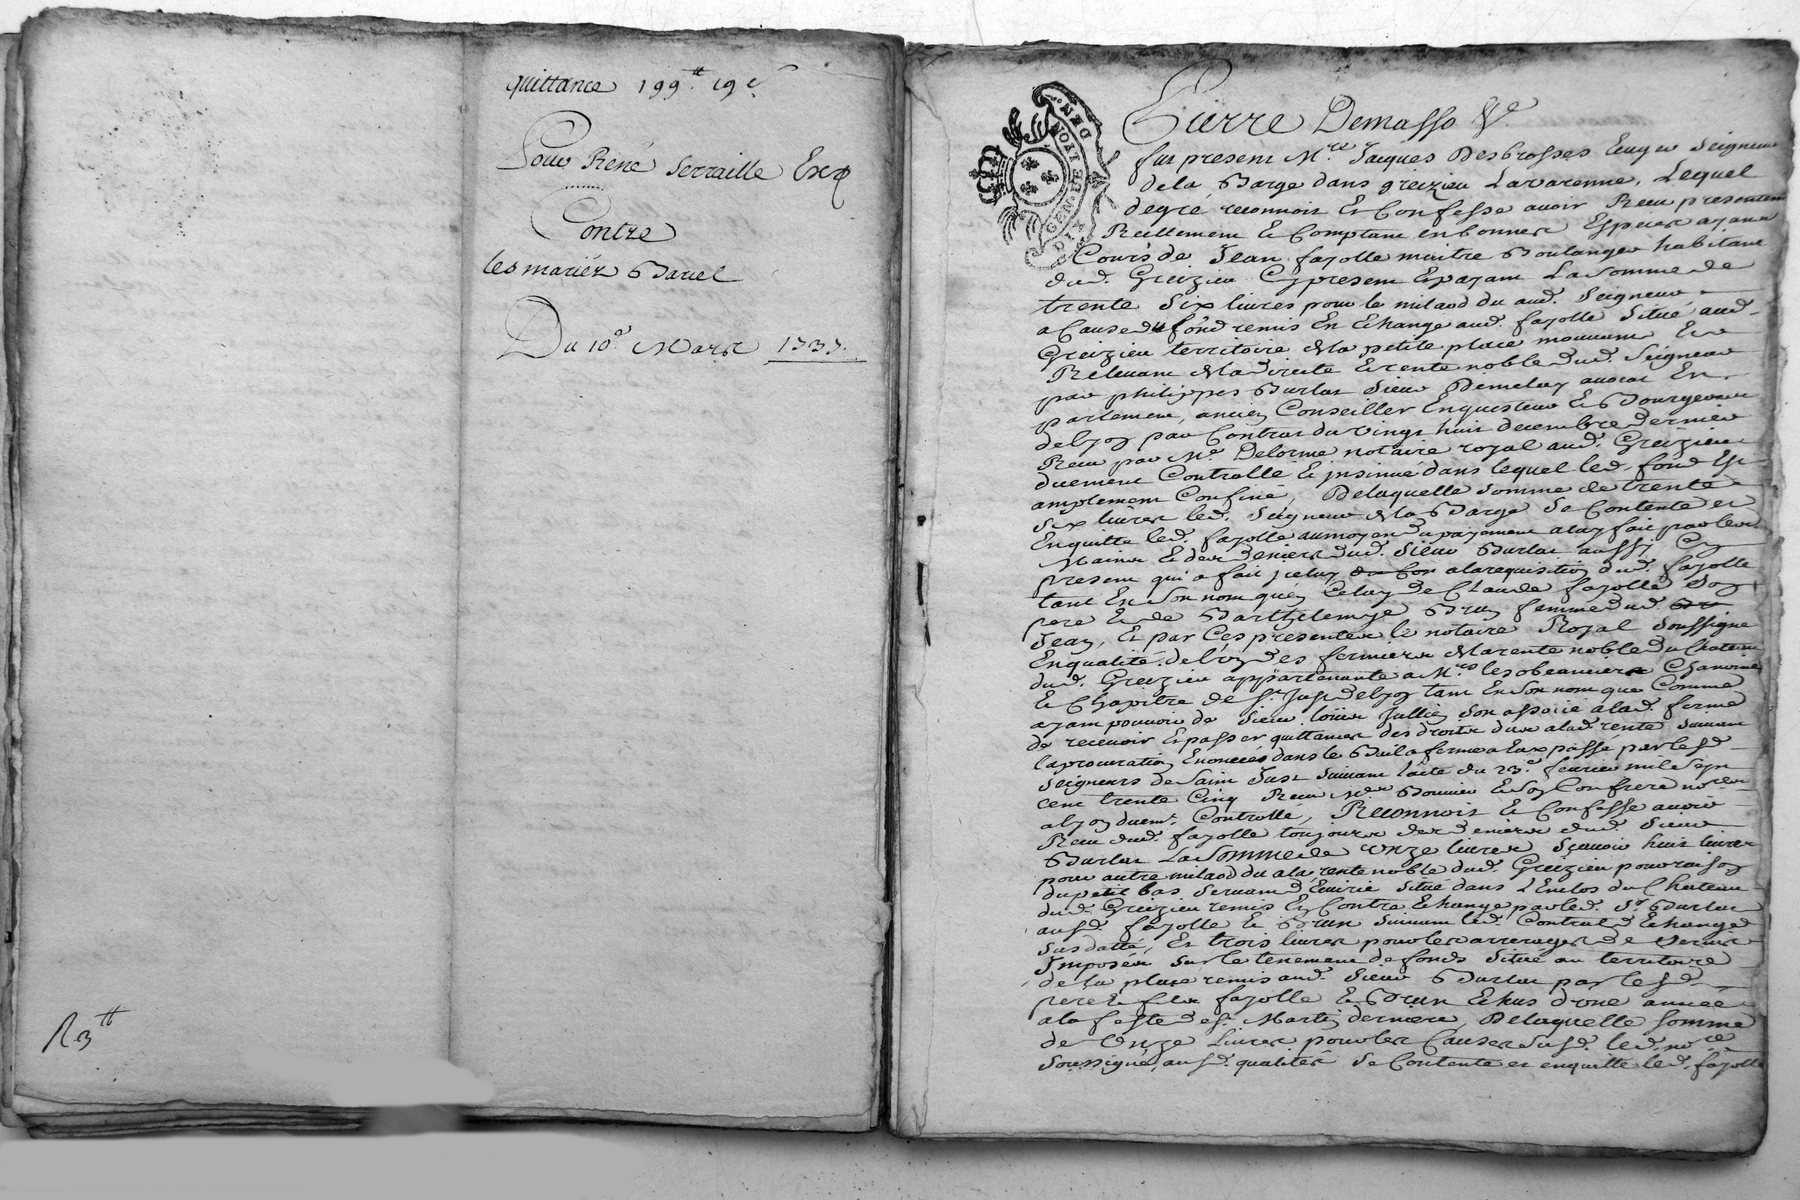 quittance 199.tt 19 s
Pour René Serraille
Contre
les mariéz Barel
Du 10e Mars 1737.
R 3tt
GEN. DE LYON
DIX DEN.
Pierre Demasso &c
fut present Mre Jacques Desbrosses Ecuyer Seigneur
de la Barge dans greizieu Lavarenne, Lequel
degré reconnoit Et Confesse avoir Receu presentement
Reellement & Comptant en bonnes Especes ayant
Cours de Jean fayolle maitre Boulanger habitant
dud. Greizieu Cy present Et payant La Somme de
trente Six livres pour le milaod du aud. Seigneur
a Cause du fond remis En Echange aud. fayolle Situé aud.
Greizieu territoire de la petite place mouvant Et
Relevant de la directe Et rente noble dud. Seigneur
par philippes Burlat Sieur Demelay avocat En
parlement, ancien Conseiller Enquesteur & Bourgeois
de lyon par Contrat du vingt huit decembre dernier
Receu par Me Delorme notaire royal aud. Greizieu
duement Controllé & insinué dans lequel led. fond Est
amplement Confiné, De laquelle Somme de trente
Six livres led. Seigneur de la Barge Se Contente et
Enquitte led. fayolle au moyen du payement a luy fait par les
Mains Et des deniers dud. Sieur Burlat aussi Cy
present qui a fait iceluy a la requisition dud. fayolle
tant En Son nom que de Celuy de Claude fayolle Son
pere & de Barthelemye Brun femme dud.
Jean, Et par Ces presentes le notaire Royal Soussigné
En qualité de l'un des fermiers de la rente noble du Chateau
dud. Greizieu appartenante a Mrs les obeanciers Chanoines
& Chapitre de St Just de lyon tant En Son nom que Comme
ayant pouvoir de Sieur loüis Jullien Son associé a lad. ferme
de recevoir & passer quittances des droits dus a lad. rente Suivant
la procuration Enoncées dans le Bail a ferme a Eux passé par lesd.
Seigneurs de Saint Just Suivant l'acte du 23e fevrier mil Sept
cent trente Cinq Receu Me Bonnier & Son Confrere nores
a lyon duemt Controllé, Reconnoit & Confesse avoir
Receu dud. fayolle toujours des deniers dud. Sieur
Burlat La Somme de onze livres Sçavoir huit livres
pour autre milaod du a la rente noble dud. Greizieu pour raison
du petit bas Servant d'Ecurie Situé dans L'Enclos du Chateau
dud. Greizieu remis En Contre Echange par led. Sr Burlat
ausd. fayolle & Brun Suivant led. Contrat d'Echange
Susdatté, Et trois livres pour les arrerages de Servis
Imposés Sur le tenement de fonds Situé au territoire
de la place remis aud. Sieur Burlat par lesd.
pere & fils fayolle & Brun Echus d'une année
a la feste de St Martin derniere, De laquelle Somme
de Onze Livres pour les Causes Susd. led. nore
Soussigné, ausd. qualités Se Contente et enquitte led. fayolle